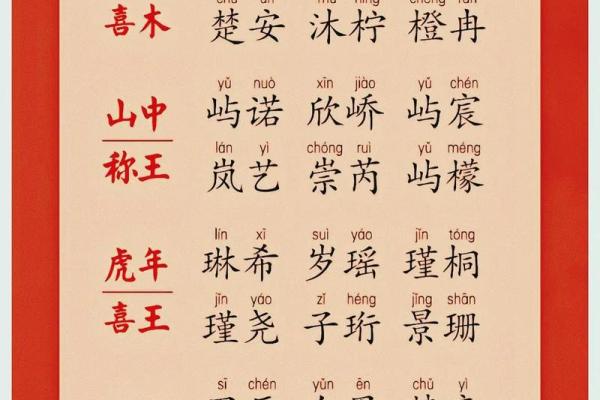 喜木 楚安 沐柠 橙冉
yǔ nuò xīn jiào yǔ chén
山中 屿诺 欣峤 屿宸
lán yì chóng ruì yǔ méng
称王 岚艺 崇芮 屿檬
lín xī suì yáo jǐn tóng
虎年 琳希 岁瑶 瑾桐
jǐn yáo zǐ héng jǐng shān
喜王 瑾尧 子珩 景珊
sī chén yǔn ēn chǔ yì